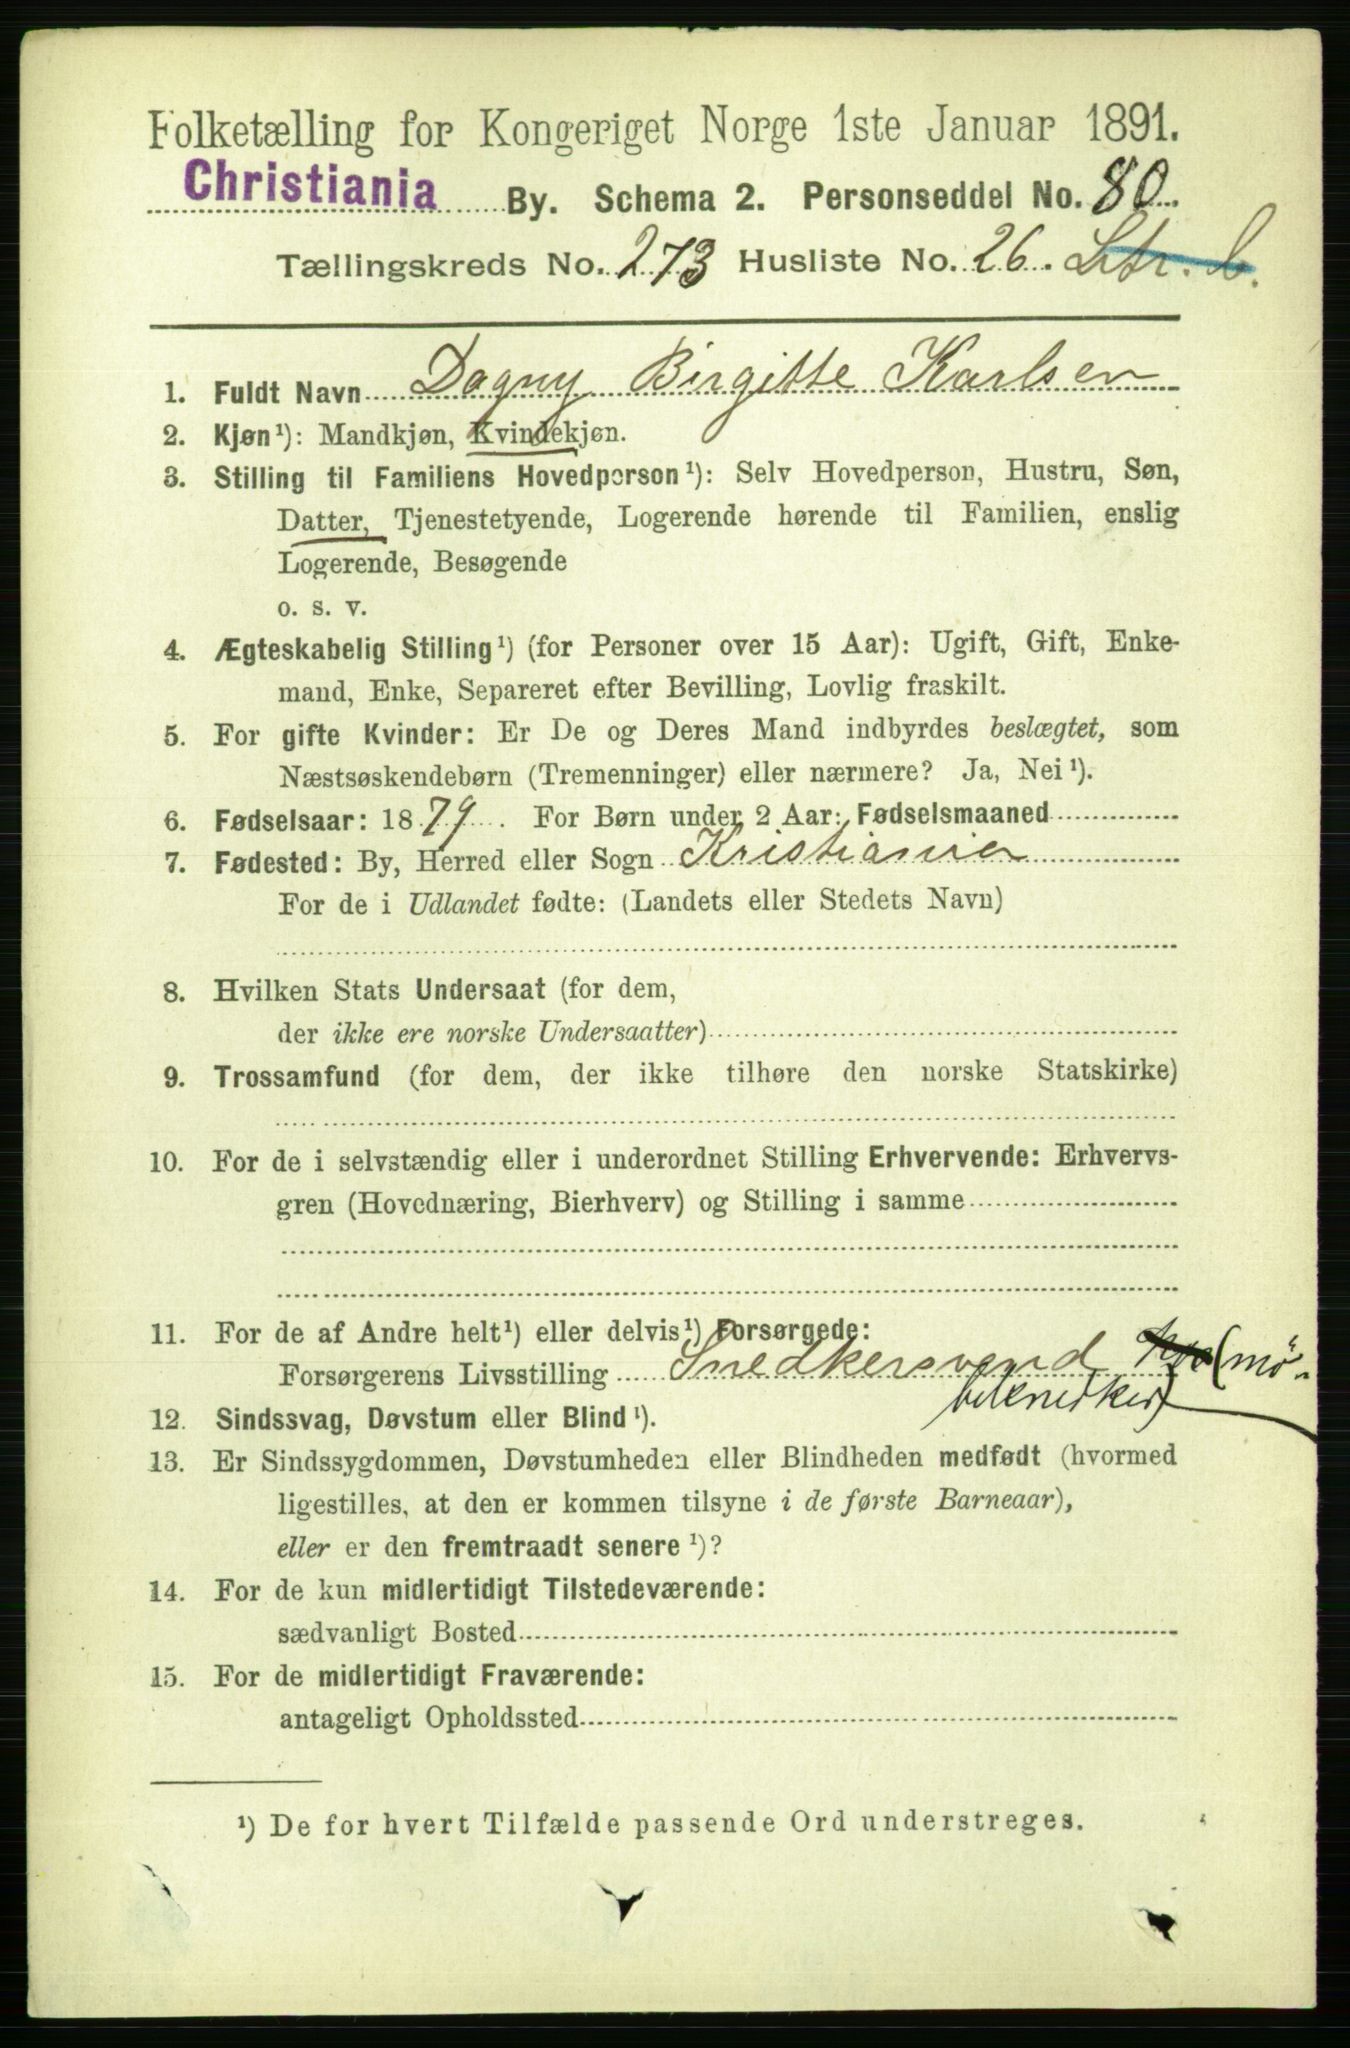 Folketælling for Kongeriget Norge 1ste Januar 1891.
Christiania By. Schema 2. Personseddel No. 80.
Tællingskreds No. 273 Husliste No. 26. Ltr. b.
1. Fuldt Navn Dagny Birgitte Karlsen
2. Kjøn¹): Mandkjøn, Kvindekjøn.
3. Stilling til Familiens Hovedperson¹): Selv Hovedperson, Hustru, Søn,
Datter, Tjenestetyende, Logerende hørende til Familien, enslig
Logerende, Besøgende
o. s. v.
4. Ægteskabelig Stilling¹) (for Personer over 15 Aar): Ugift, Gift, Enke-
mand, Enke, Separeret efter Bevilling, Lovlig fraskilt.
5. For gifte Kvinder: Er De og Deres Mand indbyrdes beslægtet, som
Næstsøskendebørn (Tremenninger) eller nærmere? Ja, Nei¹).
6. Fødselsaar: 1879. For Børn under 2 Aar: Fødselsmaaned
7. Fødested: By, Herred eller Sogn Kristiania
For de i Udlandet fødte: (Landets eller Stedets Navn)
8. Hvilken Stats Undersaat (for dem,
der ikke ere norske Undersaatter)
9. Trossamfund (for dem, der ikke tilhøre den norske Statskirke)
10. For de i selvstændig eller i underordnet Stilling Erhvervende: Erhvervs-
gren (Hovednæring, Bierhverv) og Stilling i samme
11. For de af Andre helt¹) eller delvis¹) Forsørgede:
Forsørgerens Livsstilling Snedkersvend (mö-
belsnedker)
12. Sindssvag, Døvstum eller Blind¹).
13. Er Sindssygdommen, Døvstumheden eller Blindheden medfødt (hvormed
ligestilles, at den er kommen tilsyne i de første Barneaar),
eller er den fremtraadt senere¹)?
14. For de kun midlertidigt Tilstedeværende:
sædvanligt Bosted
15. For de midlertidigt Fraværende:
antageligt Opholdssted
¹) De for hvert Tilfælde passende Ord understreges.